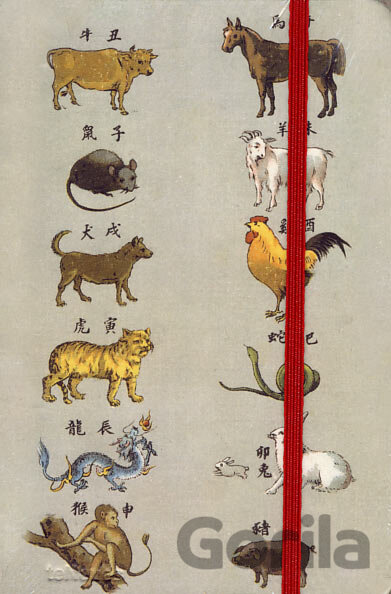 牛 丑
馬
鼠 子
羊 未
犬 戌
雞 酉
虎 寅
蛇 巳
龍 辰
卯
兔
猴 申
豬
Gorila